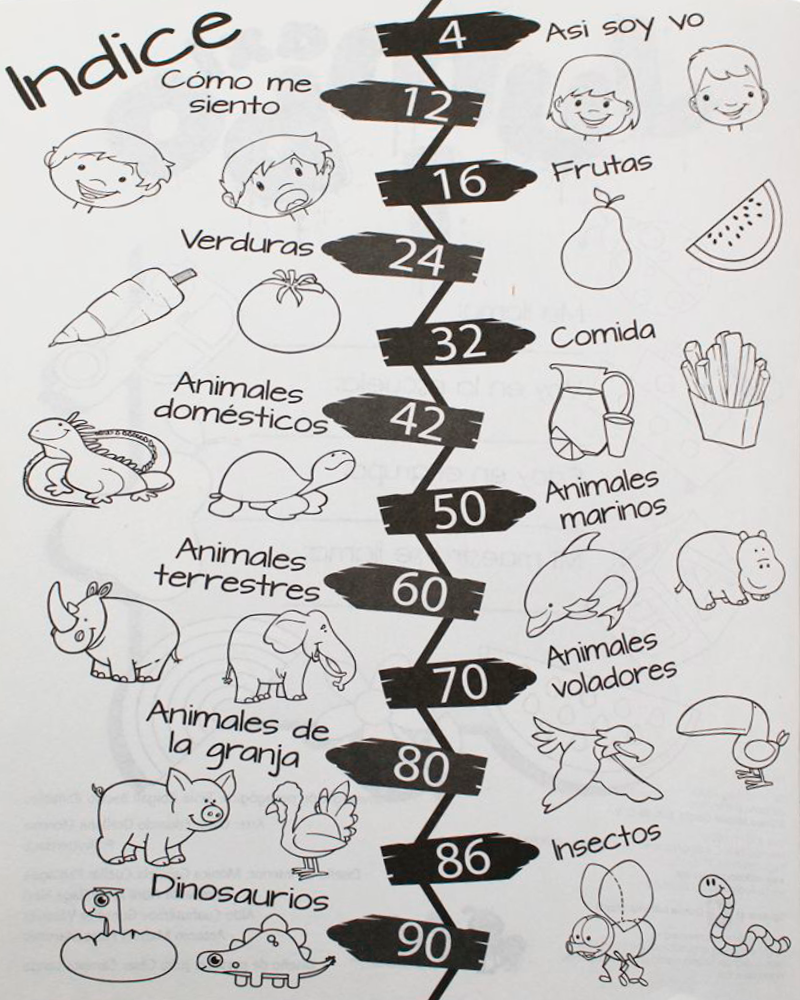 Indice
4
Asi soy yo
Cómo me
siento
12
16
Frutas
Verduras
24
32
Comida
Animales
domésticos
42
50
Animales
marinos
Animales
terrestres
60
70
Animales
voladores
Animales de
la granja
80
86
Insectos
Dinosaurios
90